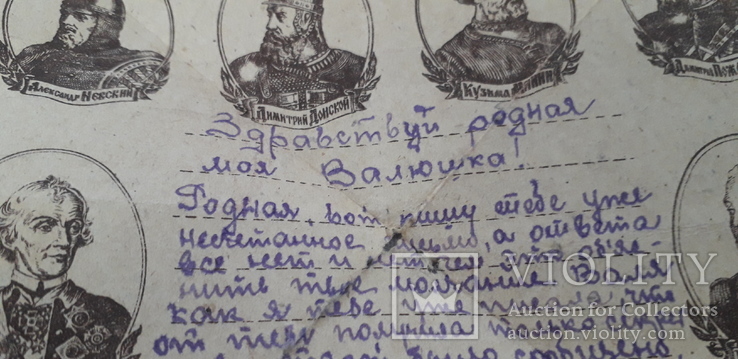 Александр Невский
Димитрий Донской
Кузьма Минин
Димитрий Пожа
Здравствуй родная
моя Валюшка!
Родная, вот пишу тебе уже
несчетанное письмо, а ответа
все нет и нет
нить твое молчание. Валя
как я тебе уже писала, что
от тебя получила
VIOLITY
Auction for Collectors
auction.violity.com